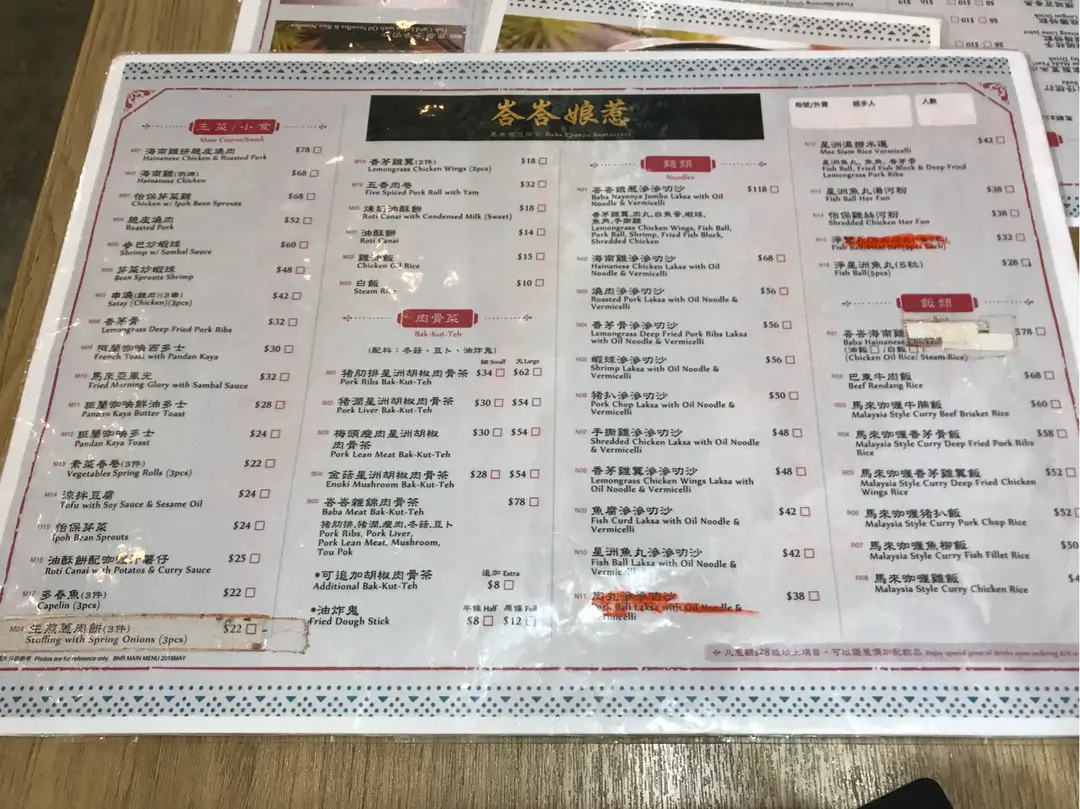 峇峇娘惹
Baba Nyonya Restaurant
枱號/外賣 經手人 人數
主菜/小食
Main Course/Snack
M01 海南雞拼脆皮燒肉 $78
Hainanese Chicken & Roasted Pork
M02 海南雞(例牌) $68
Hainanese Chicken
M03 怡保芽菜雞 $68
Chicken w/ Ipoh Bean Sprouts
M04 脆皮燒肉 $52
Roasted Pork
M05 參巴炒蝦球 $60
Shrimp w/ Sambal Sauce
M06 芽菜炒蝦球 $48
Bean Sprouts Shrimp
M07 串燒(雞肉)(3串) $42
Satay (Chicken)(3pcs)
M08 香茅骨 $32
Lemongrass Deep Fried Pork Ribs
M09 斑蘭咖吔西多士 $30
French Toast with Pandan Kaya
M10 馬來亞風光 $32
Fried Morning Glory with Sambal Sauce
M11 斑蘭咖吔鮮油多士 $28
Pandan Kaya Butter Toast
M12 斑蘭咖吔多士 $24
Pandan Kaya Toast
M13 素菜春卷(3件) $22
Vegetables Spring Rolls (3pcs)
M14 涼拌豆腐 $24
Tofu with Soy Sauce & Sesame Oil
M15 怡保芽菜 $24
Ipoh Bean Sprouts
M16 油酥餅配咖喱汁薯仔 $25
Roti Canai with Potatos & Curry Sauce
M17 多春魚(3件) $22
Capelin (3pcs)
M24 生煎蔥肉餅(3件) $22
Stuffing with Spring Onions (3pcs)
Photos are for reference only. BNR MAIN MENU 2019MAY
M18 香茅雞翼(2件) $18
Lemongrass Chicken Wings (2pcs)
M19 五香肉卷 $32
Five Spiced Pork Roll with Yam
M20 煉奶油酥餅 $18
Roti Canai with Condensed Milk (Sweet)
M21 油酥餅 $14
Roti Canai
M22 雞油飯 $15
Chicken Oil Rice
M23 白飯 $10
Steam Rice
肉骨菜
Bak-Kut-Teh
(配料：冬菇、豆卜、油炸鬼)
細 Small 大 Large
B01 豬肋排星洲胡椒肉骨茶 $34 $62
Pork Ribs Bak-Kut-Teh
B02 豬潤星洲胡椒肉骨茶 $30 $54
Pork Liver Bak-Kut-Teh
B03 梅頭瘦肉星洲胡椒 $30 $54
肉骨茶
Pork Lean Meat Bak-Kut-Teh
B04 金菇星洲胡椒肉骨茶 $28 $54
Enoki Mushroom Bak-Kut-Teh
B05 峇峇雜錦肉骨茶 $78
Baba Meat Bak-Kut-Teh
豬肋排,豬潤,瘦肉,冬菇,豆卜
Pork Ribs, Pork Liver,
Pork Lean Meat, Mushroom,
Tou Pok
*可追加胡椒肉骨茶 追加 Extra
Additional Bak-Kut-Teh $8
*油炸鬼 半條 Half 原條 Full
Fried Dough Stick $8 $12
麵類
Noodles
N01 峇峇娘惹滲滲叻沙 $118
Baba Nayonya Jumbo Laksa with Oil
Noodle & Vermicelli
香茅雞翼,肉丸,白魚蛋,蝦球,
魚角,手撕雞
Lemongrass Chicken Wings, Fish Ball,
Pork Ball, Shrimp, Fried Fish Block,
Shredded Chicken
N02 海南雞滲滲叻沙 $68
Hainanese Chicken Laksa with Oil
Noodle & Vermicelli
N03 燒肉滲滲叻沙 $56
Roasted Pork Laksa with Oil Noodle &
Vermicelli
N04 香茅骨滲滲叻沙 $56
Lemongrass Deep Fried Pork Ribs Laksa
with Oil Noodle & Vermicelli
N05 蝦球滲滲叻沙 $56
Shrimp Laksa with Oil Noodle &
Vermicelli
N06 豬扒滲滲叻沙 $50
Pork Chop Laksa with Oil Noodle &
Vermicelli
N07 手撕雞滲滲叻沙 $48
Shredded Chicken Laksa with Oil Noodle
& Vermicelli
N08 香茅雞翼滲滲叻沙 $48
Lemongrass Chicken Wings Laksa with
Oil Noodle & Vermicelli
N09 魚腐滲滲叻沙 $42
Fish Curd Laksa with Oil Noodle &
Vermicelli
N10 星洲魚丸滲滲叻沙 $42
Fish Ball Laksa with Oil Noodle &
Vermicelli
N11 肉丸滲滲叻沙 $38
Pork Ball Laksa with Oil Noodle &
Vermicelli
N12 星洲濕撈米暹 $42
Mee Siam Rice Vermicelli
星洲魚丸, 魚角, 香茅骨
Fish Ball, Fried Fish Block & Deep Fried
Lemongrass Pork Ribs
N13 星洲魚丸湯河粉 $38
Fish Ball Hor Fun
N14 怡保雞絲河粉 $38
Shredded Chicken Hor Fun
N15 淨雙丸 $32
Fish Ball/Meat Ball(3pcs Each)
N16 淨星洲魚丸(5粒) $28
Fish Ball(5pcs)
飯類
Rice
R01 峇峇海南雞 $78
Baba Hainanese Chicken
(油飯 /白飯 )
(Chicken Oil Rice/ Steam Rice)
R02 巴東牛肉飯 $68
Beef Rendang Rice
R03 馬來咖喱牛腩飯 $60
Malaysia Style Curry Beef Brisket Rice
R04 馬來咖喱香茅骨飯 $58
Malaysia Style Curry Deep Fried Pork Ribs
Rice
R05 馬來咖喱香茅雞翼飯 $52
Malaysia Style Curry Deep Fried Chicken
Wings Rice
R06 馬來咖喱豬扒飯 $52
Malaysia Style Curry Pork Chop Rice
R07 馬來咖喱魚柳飯 $50
Malaysia Style Curry Fish Fillet Rice
R08 馬來咖喱雞飯
Malaysia Style Curry Chicken Rice
凡惠顧$28或以上項目，可以優惠價加配飲品 Enjoy special price of drinks upon ordering $28